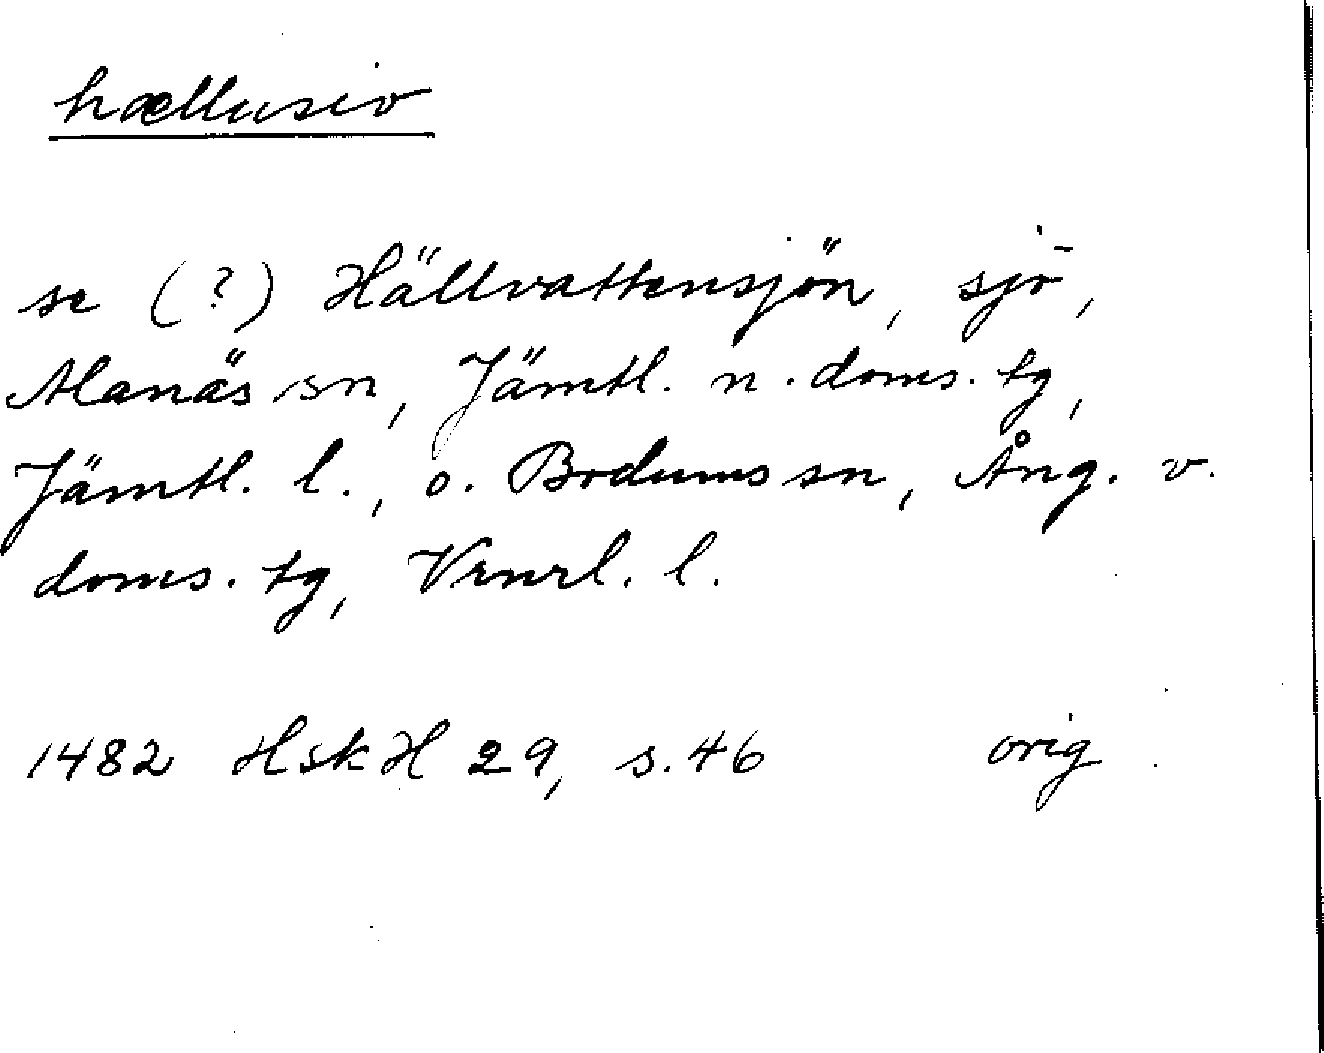 hællusiv
se (?) Hällvattensjön, sjö,
Alanäs sn, Jämtl. n. doms. tg,
Jämtl. l., o. Bodums sn, Ång. v.
doms. tg, Vrnrl. l.
1482 HskH 29, s. 46 orig